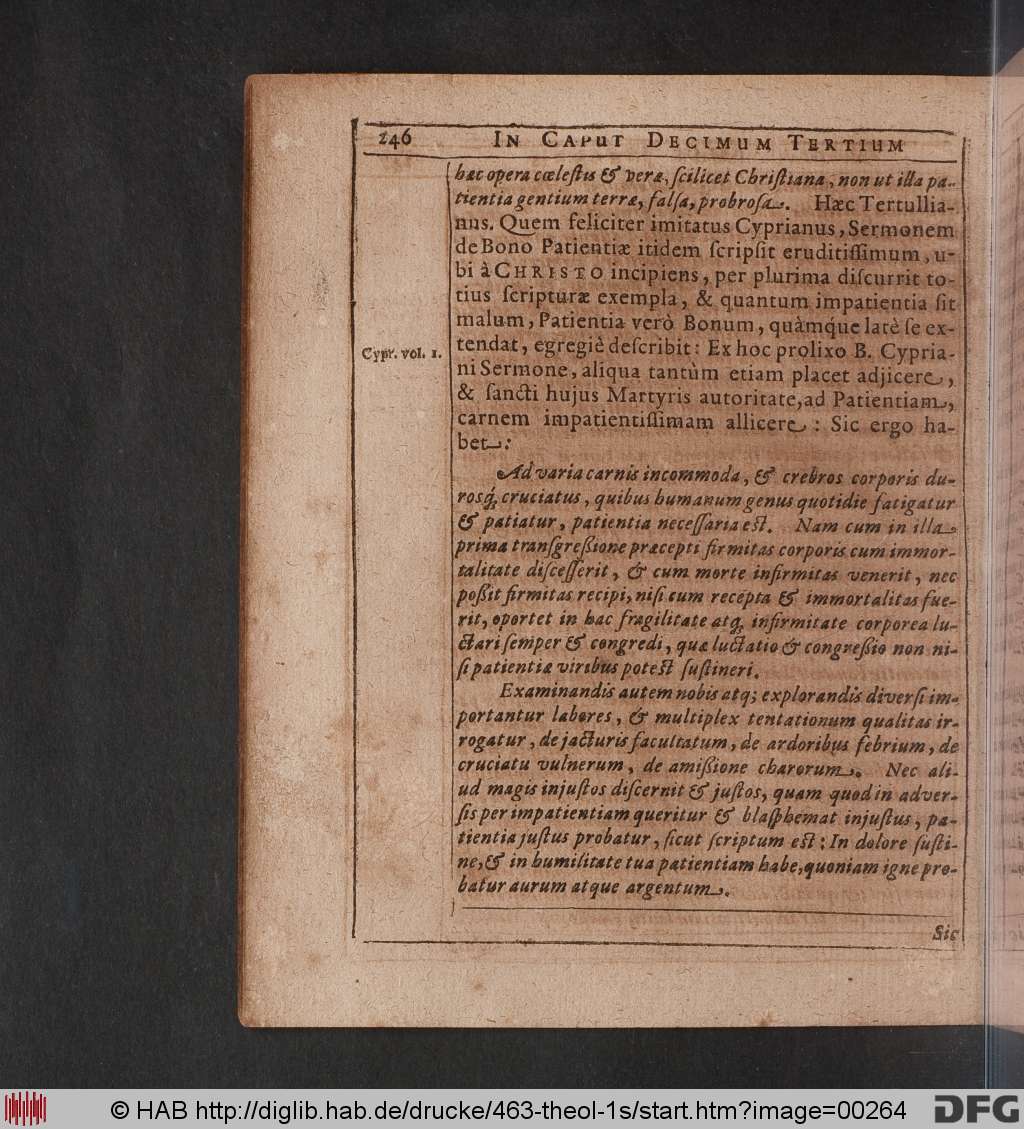 246 IN CAPUT DECIMUM TERTIUM
hac opera cœlestis & veræ, scilicet Christiana, non ut illa pa-
tientia gentium terræ, falsa, probrosa. Hæc Tertullia-
nus. Quem feliciter imitatus Cyprianus, Sermonem
de Bono Patientiæ itidem scripsit eruditissimum, u-
bi à CHRISTO incipiens, per plurima discurrit to-
tius scripturæ exempla, & quantum impatientia sit
malum, Patientia verò Bonum, quàmq́ue latè se ex-
tendat, egregiè describit: Ex hoc prolixo B. Cypria-
Cypr. vol. 1.
ni Sermone, aliqua tantùm etiam placet adjicere,
& sancti hujus Martyris autoritate, ad Patientiam,
carnem impatientissimam allicere: Sic ergo ha-
bet:
Ad varia carnis incommoda, & crebros corporis du-
rosq́; cruciatus, quibus humanum genus quotidie fatigatur
& patiatur, patientia necessaria est. Nam cum in illa
prima transgreßione præcepti firmitas corporis cum immor-
talitate discesserit, & cum morte infirmitas venerit, nec
poßit firmitas recipi, nisi cum recepta & immortalitas fue-
rit, oportet in hac fragilitate atq; infirmitate corporea lu-
ctari semper & congredi, quæ luctatio & congreßio non ni-
si patientiæ viribus potest sustineri.
Examinandis autem nobis atq; explorandis diversi im-
portantur labores, & multiplex tentationum qualitas ir-
rogatur, de jacturis facultatum, de ardoribus febrium, de
cruciatu vulnerum, de amißione charorum. Nec ali-
ud magis injustos discernit & justos, quam quod in adver-
sis per impatientiam queritur & blasphemat injustus, pa-
tientia justus probatur, sicut scriptum est: In dolore susti-
ne, & in humilitate tua patientiam habe, quoniam igne pro-
batur aurum atque argentum.
Sic
© HAB http://diglib.hab.de/drucke/463-theol-1s/start.htm?image=00264 DFG